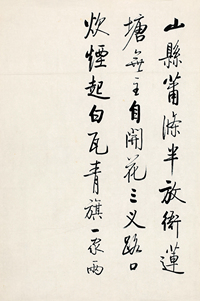 山縣蕭條半放衙蓮
塘無主自開花三叉路口
炊煙起白瓦青旗一两家